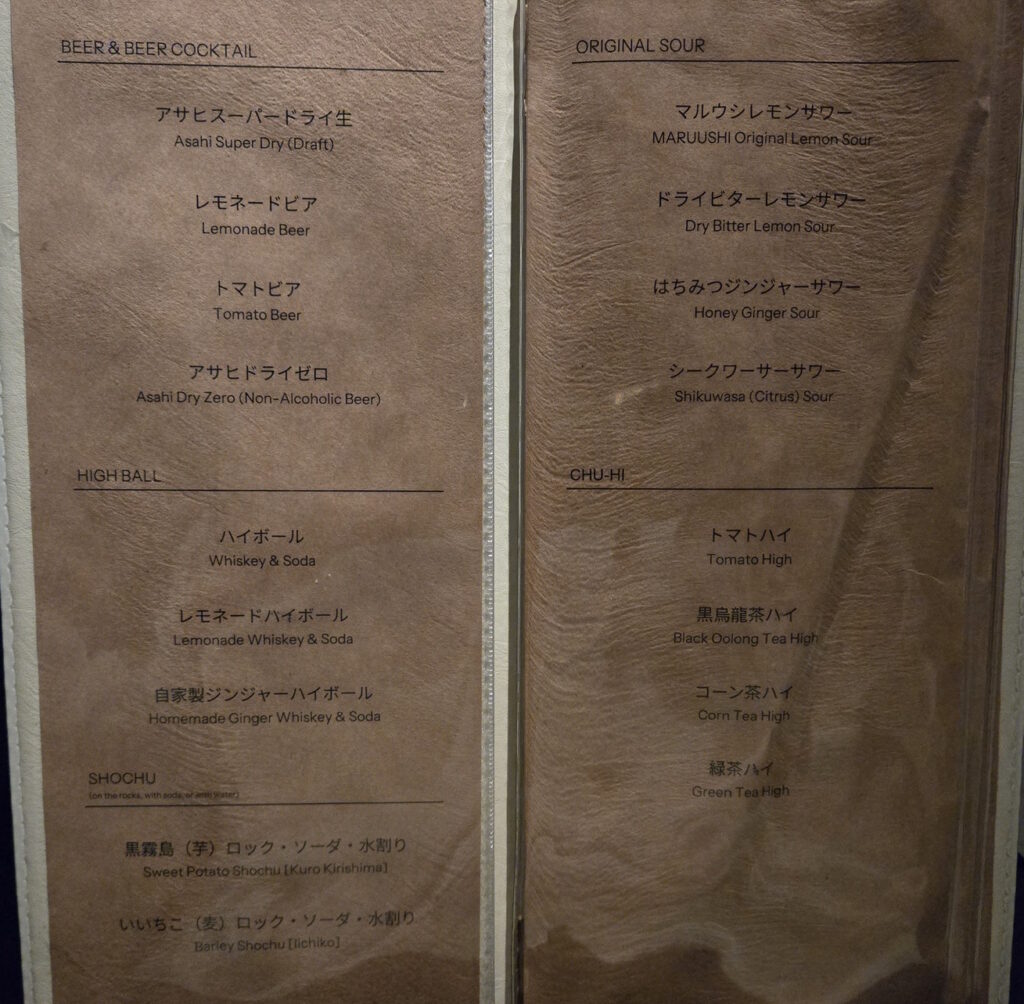 BEER & BEER COCKTAIL
アサヒスーパードライ生
Asahi Super Dry (Draft)
レモネードビア
Lemonade Beer
トマトビア
Tomato Beer
アサヒドライゼロ
Asahi Dry Zero (Non-Alcoholic Beer)
HIGH BALL
ハイボール
Whiskey & Soda
レモネードハイボール
Lemonade Whiskey & Soda
自家製ジンジャーハイボール
Homemade Ginger Whiskey & Soda
SHOCHU
(on the rocks, with soda, or with water)
黒霧島（芋）ロック・ソーダ・水割り
Sweet Potato Shochu [Kuro Kirishima]
いいちこ（麦）ロック・ソーダ・水割り
Barley Shochu [Iichiko]
ORIGINAL SOUR
マルウシレモンサワー
MARUUSHI Original Lemon Sour
ドライビターレモンサワー
Dry Bitter Lemon Sour
はちみつジンジャーサワー
Honey Ginger Sour
シークワーサーサワー
Shikuwasa (Citrus) Sour
CHU-HI
トマトハイ
Tomato High
黒烏龍茶ハイ
Black Oolong Tea High
コーン茶ハイ
Corn Tea High
緑茶ハイ
Green Tea High